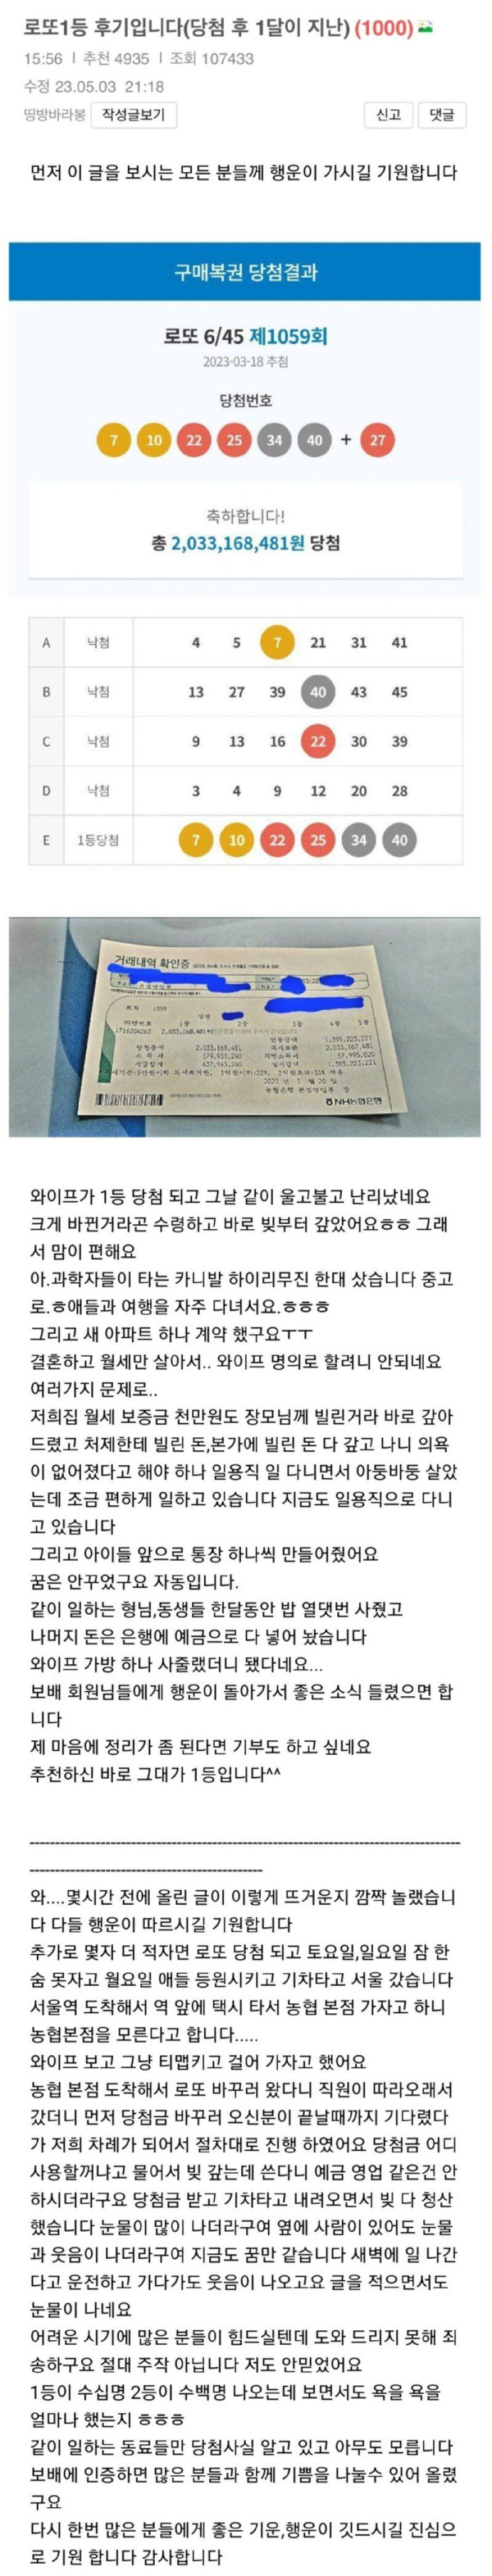 로또1등 후기입니다(당첨 후 1달이 지난) (1000)
15:56 | 추천 4935 | 조회 107433
수정 23.05.03 21:18
띵방바라봉 작성글보기 신고 댓글
먼저 이 글을 보시는 모든 분들께 행운이 가시길 기원합니다
구매복권 당첨결과
로또 6/45 제1059회
2023-03-18 추첨
당첨번호
7 10 22 25 34 40 + 27
축하합니다!
총 2,033,168,481원 당첨
A 낙첨 4 5 7 21 31 41
B 낙첨 13 27 39 40 43 45
C 낙첨 9 13 16 22 30 39
D 낙첨 3 4 9 12 20 28
E 1등당첨 7 10 22 25 34 40
거래내역 확인증
회차 1059
성명
1등 2등 3등 4등 5등
1716204263 2,033,168,481
당첨금액 2,033,168,481
소득세 579,950,240
세금합계 637,945,260
1,395,223,221
과세표준 2,033,167,481
지방소득세 57,995,020
실지급액 1,395,223,221
2023 년 3 월 20 일
NH농협은행
와이프가 1등 당첨 되고 그날 같이 울고불고 난리났네요
크게 바뀐거라곤 수령하고 바로 빚부터 갚았어요ㅎㅎ 그래
서 맘이 편해요
아.과학자들이 타는 카니발 하이리무진 한대 샀습니다 중고
로.ㅎ애들과 여행을 자주 다녀서요.ㅎㅎㅎ
그리고 새 아파트 하나 계약 했구요ㅜㅜ
결혼하고 월세만 살아서.. 와이프 명의로 할려니 안되네요
여러가지 문제로..
저희집 월세 보증금 천만원도 장모님께 빌린거라 바로 갚아
드렸고 처제한테 빌린 돈,본가에 빌린 돈 다 갚고 나니 의욕
이 없어졌다고 해야 하나 일용직 일 다니면서 아둥바둥 살았
는데 조금 편하게 일하고 있습니다 지금도 일용직으로 다니
고 있습니다
그리고 아이들 앞으로 통장 하나씩 만들어줬어요
꿈은 안꾸었구요 자동입니다.
같이 일하는 형님,동생들 한달동안 밥 열댓번 사줬고
나머지 돈은 은행에 예금으로 다 넣어 놨습니다
와이프 가방 하나 사줄랬더니 됐다네요...
보배 회원님들에게 행운이 돌아가서 좋은 소식 들렸으면 합
니다
제 마음에 정리가 좀 된다면 기부도 하고 싶네요
추천하신 바로 그대가 1등입니다^^
--------------------------------------------------------------------------------
-------------------------------------------
와....몇시간 전에 올린 글이 이렇게 뜨거운지 깜짝 놀랬습니
다 다들 행운이 따르시길 기원합니다
추가로 몇자 더 적자면 로또 당첨 되고 토요일,일요일 잠 한
숨 못자고 월요일 애들 등원시키고 기차타고 서울 갔습니다
서울역 도착해서 역 앞에 택시 타서 농협 본점 가자고 하니
농협본점을 모른다고 합니다.....
와이프 보고 그냥 티맵키고 걸어 가자고 했어요
농협 본점 도착해서 로또 바꾸러 왔다니 직원이 따라오래서
갔더니 먼저 당첨금 바꾸러 오신분이 끝날때까지 기다렸다
가 저희 차례가 되어서 절차대로 진행 하였어요 당첨금 어디
사용할꺼냐고 물어서 빚 갚는데 쓴다니 예금 영업 같은건 안
하시더라구요 당첨금 받고 기차타고 내려오면서 빚 다 청산
했습니다 눈물이 많이 나더라구여 옆에 사람이 있어도 눈물
과 웃음이 나더라구여 지금도 꿈만 같습니다 새벽에 일 나간
다고 운전하고 가다가도 웃음이 나오고요 글을 적으면서도
눈물이 나네요
어려운 시기에 많은 분들이 힘드실텐데 도와 드리지 못해 죄
송하구요 절대 주작 아닙니다 저도 안믿었어요
1등이 수십명 2등이 수백명 나오는데 보면서도 욕을 욕을
얼마나 했는지 ㅎㅎㅎ
같이 일하는 동료들만 당첨사실 알고 있고 아무도 모릅니다
보배에 인증하면 많은 분들과 함께 기쁨을 나눌수 있어 올렸
구요
다시 한번 많은 분들에게 좋은 기운,행운이 깃드시길 진심으
로 기원 합니다 감사합니다